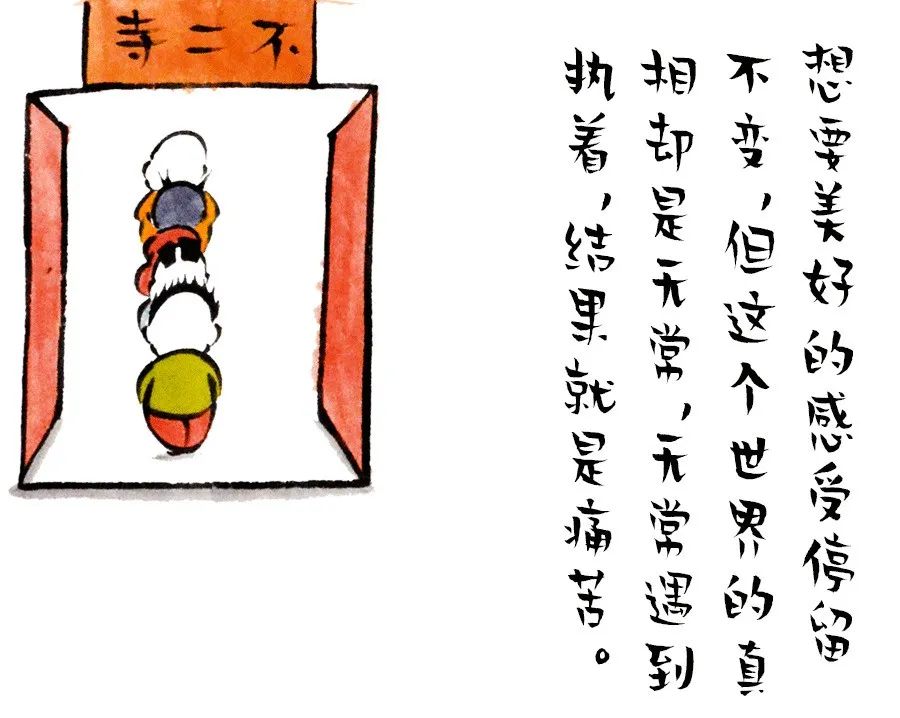 不二寺
想要美好的感受停留
不变，但这个世界的真
相却是无常，无常遇到
执着，结果就是痛苦。